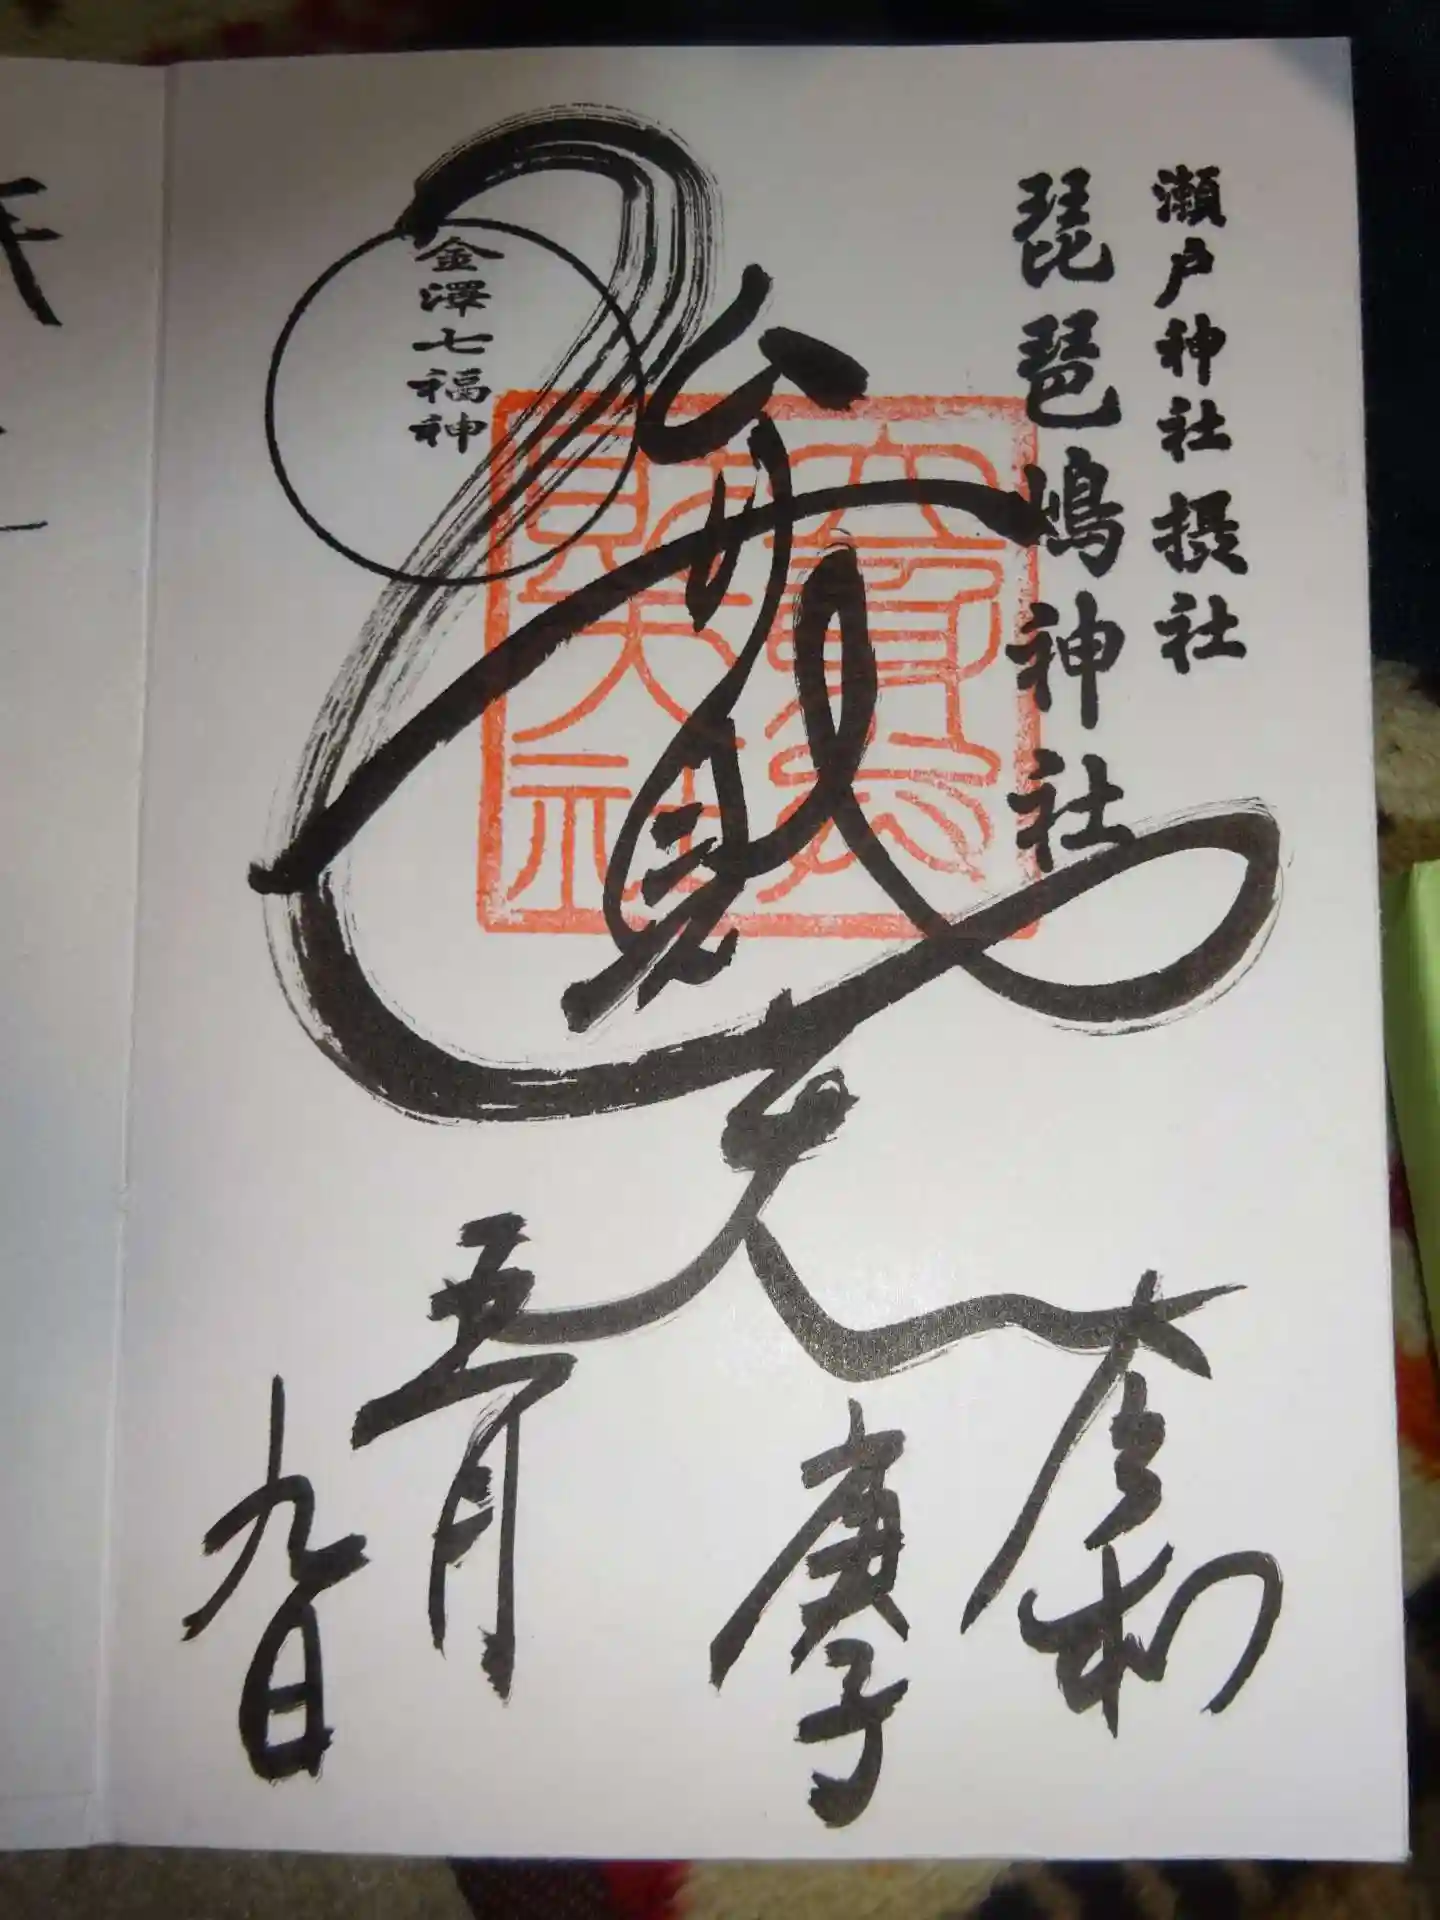 瀬戸神社摂社
琵琶嶋神社
弁財天
金澤七福神
令和
庚子
五月
九日